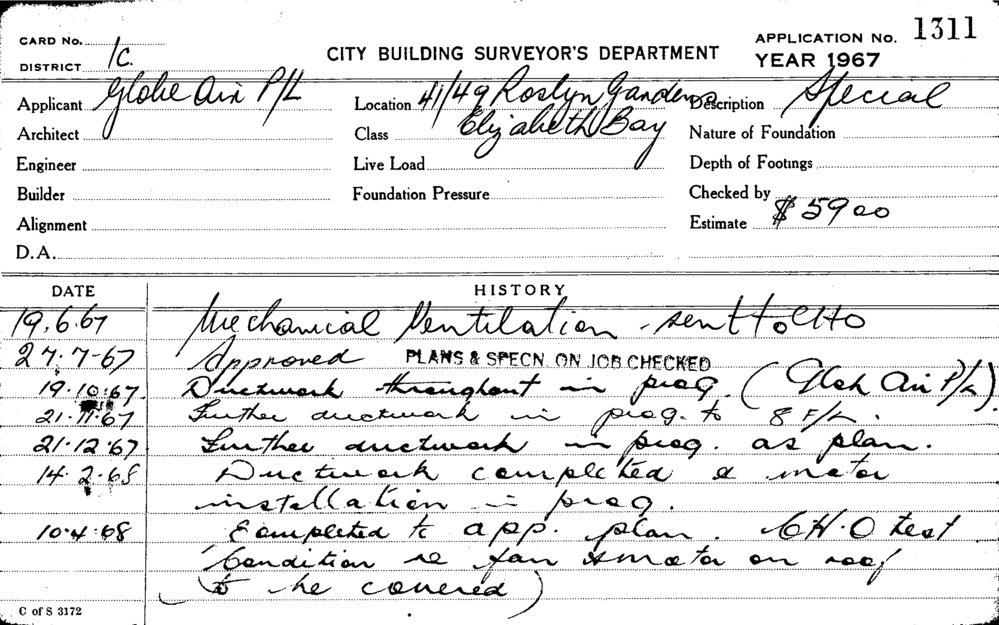 CARD No.
DISTRICT 1c.
CITY BUILDING SURVEYOR'S DEPARTMENT
APPLICATION No. 1311
YEAR 1967
Applicant Globe Air P/L
Location 41/49 Roslyn Gardens
Description Special
Architect
Class Elizabeth Bay
Nature of Foundation
Engineer
Live Load
Depth of Footings
Builder
Foundation Pressure
Checked by
Alignment
Estimate $5900
D.A.
DATE HISTORY
19.6.67 Mechanical Ventilation - sent to CHO
27.7-67 Approved PLANS & SPECN. ON JOB CHECKED
19.10.67 Ductwork throughout in prog. (Air P/L).
21.11.67 Further ductwork in prog. to 8 F/L.
21.12.67 Further ductwork in prog. as plan.
14.2.68 Ductwork completed & motor
installation in prog.
10.4.68 Completed to app. plan. CH.O test
Condition re fan & motor on roof
(to be covered)
C of S 3172